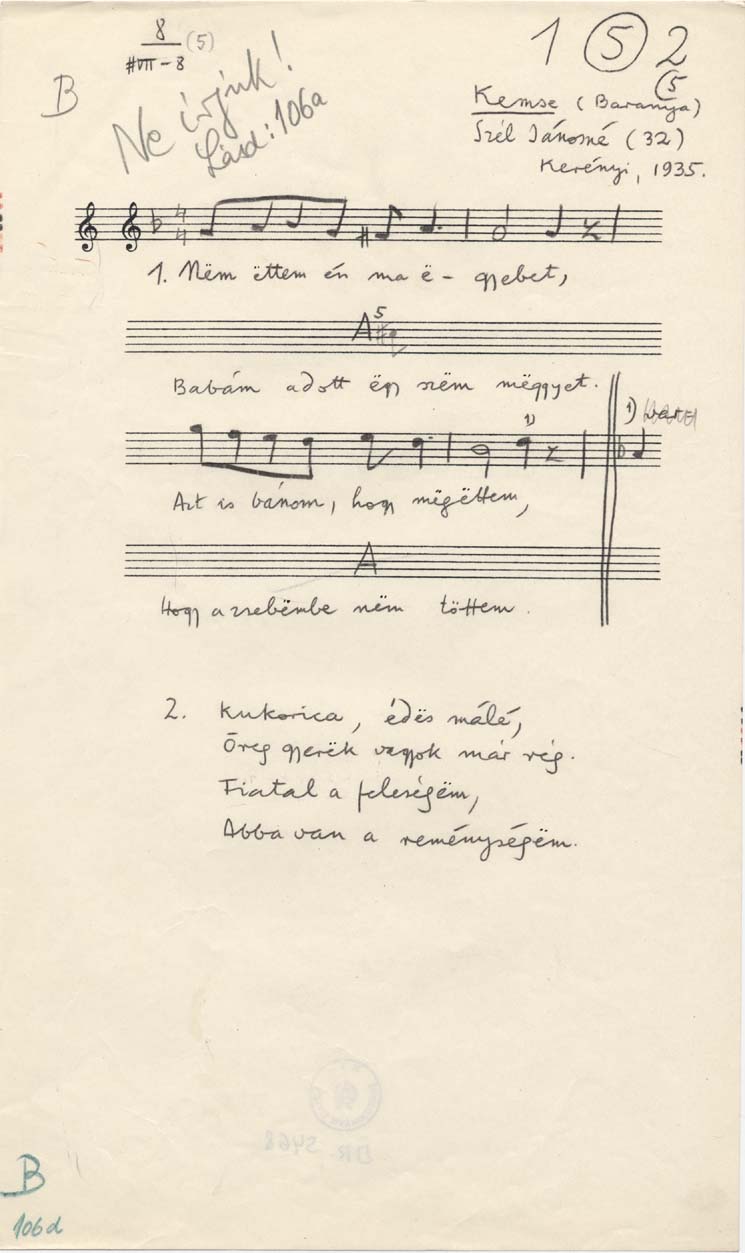 8 (5)
#VII - 8
1 5 2
(5
B
Ne írjuk!
Lásd: 106a
Kemse (Baranya)
Szél Jánosné (32)
Kerényi, 1935.
4
4
1. Nëm ëttem én ma ë - gyebet,
A5
Babám adott ëgy szëm mëggyet.
1)
1)
Azt is bánom, hogy mëgëttem,
A
Hogy a zsebëmbe nëm töttem.
2. Kukorica, édës málé,
Öreg gyerëk vagyok már rég.
Fiatal a feleségëm,
Abba van a reménységëm.
DR. 5468
B
106d